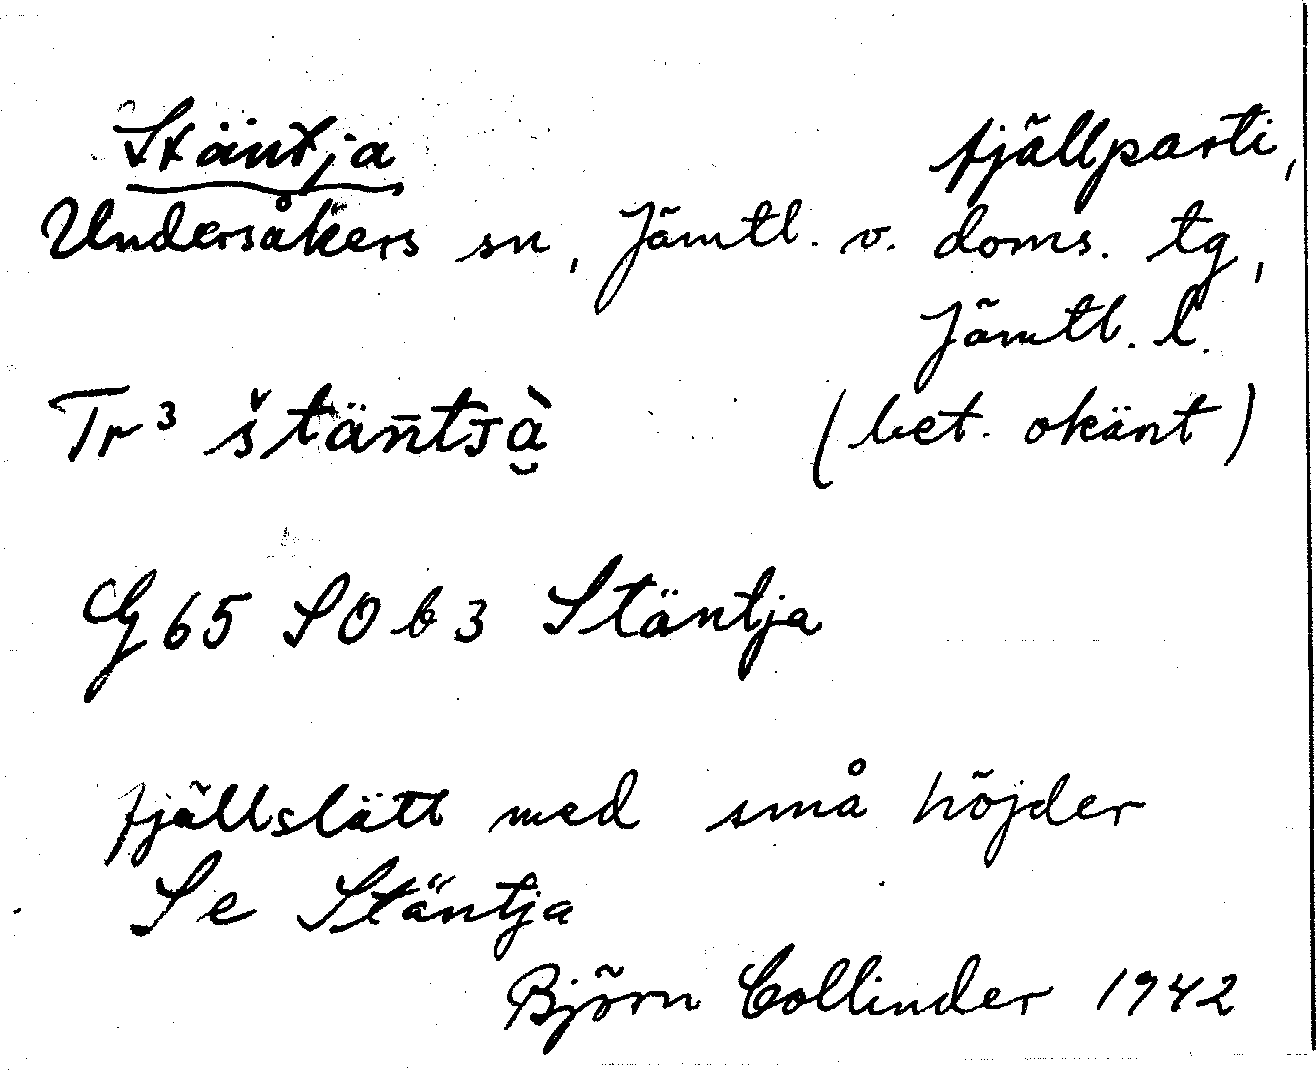 Stäntja fjällparti,
Undersåkers sn, Jämtl. v. doms. tg,
Jämtl. l.
Tr³ štän̄tᴊà̮ (bet. okänt)
G 65 SO b 3 Stäntja
fjällslätt med små höjder
Se Stäntja
Björn Collinder 1942